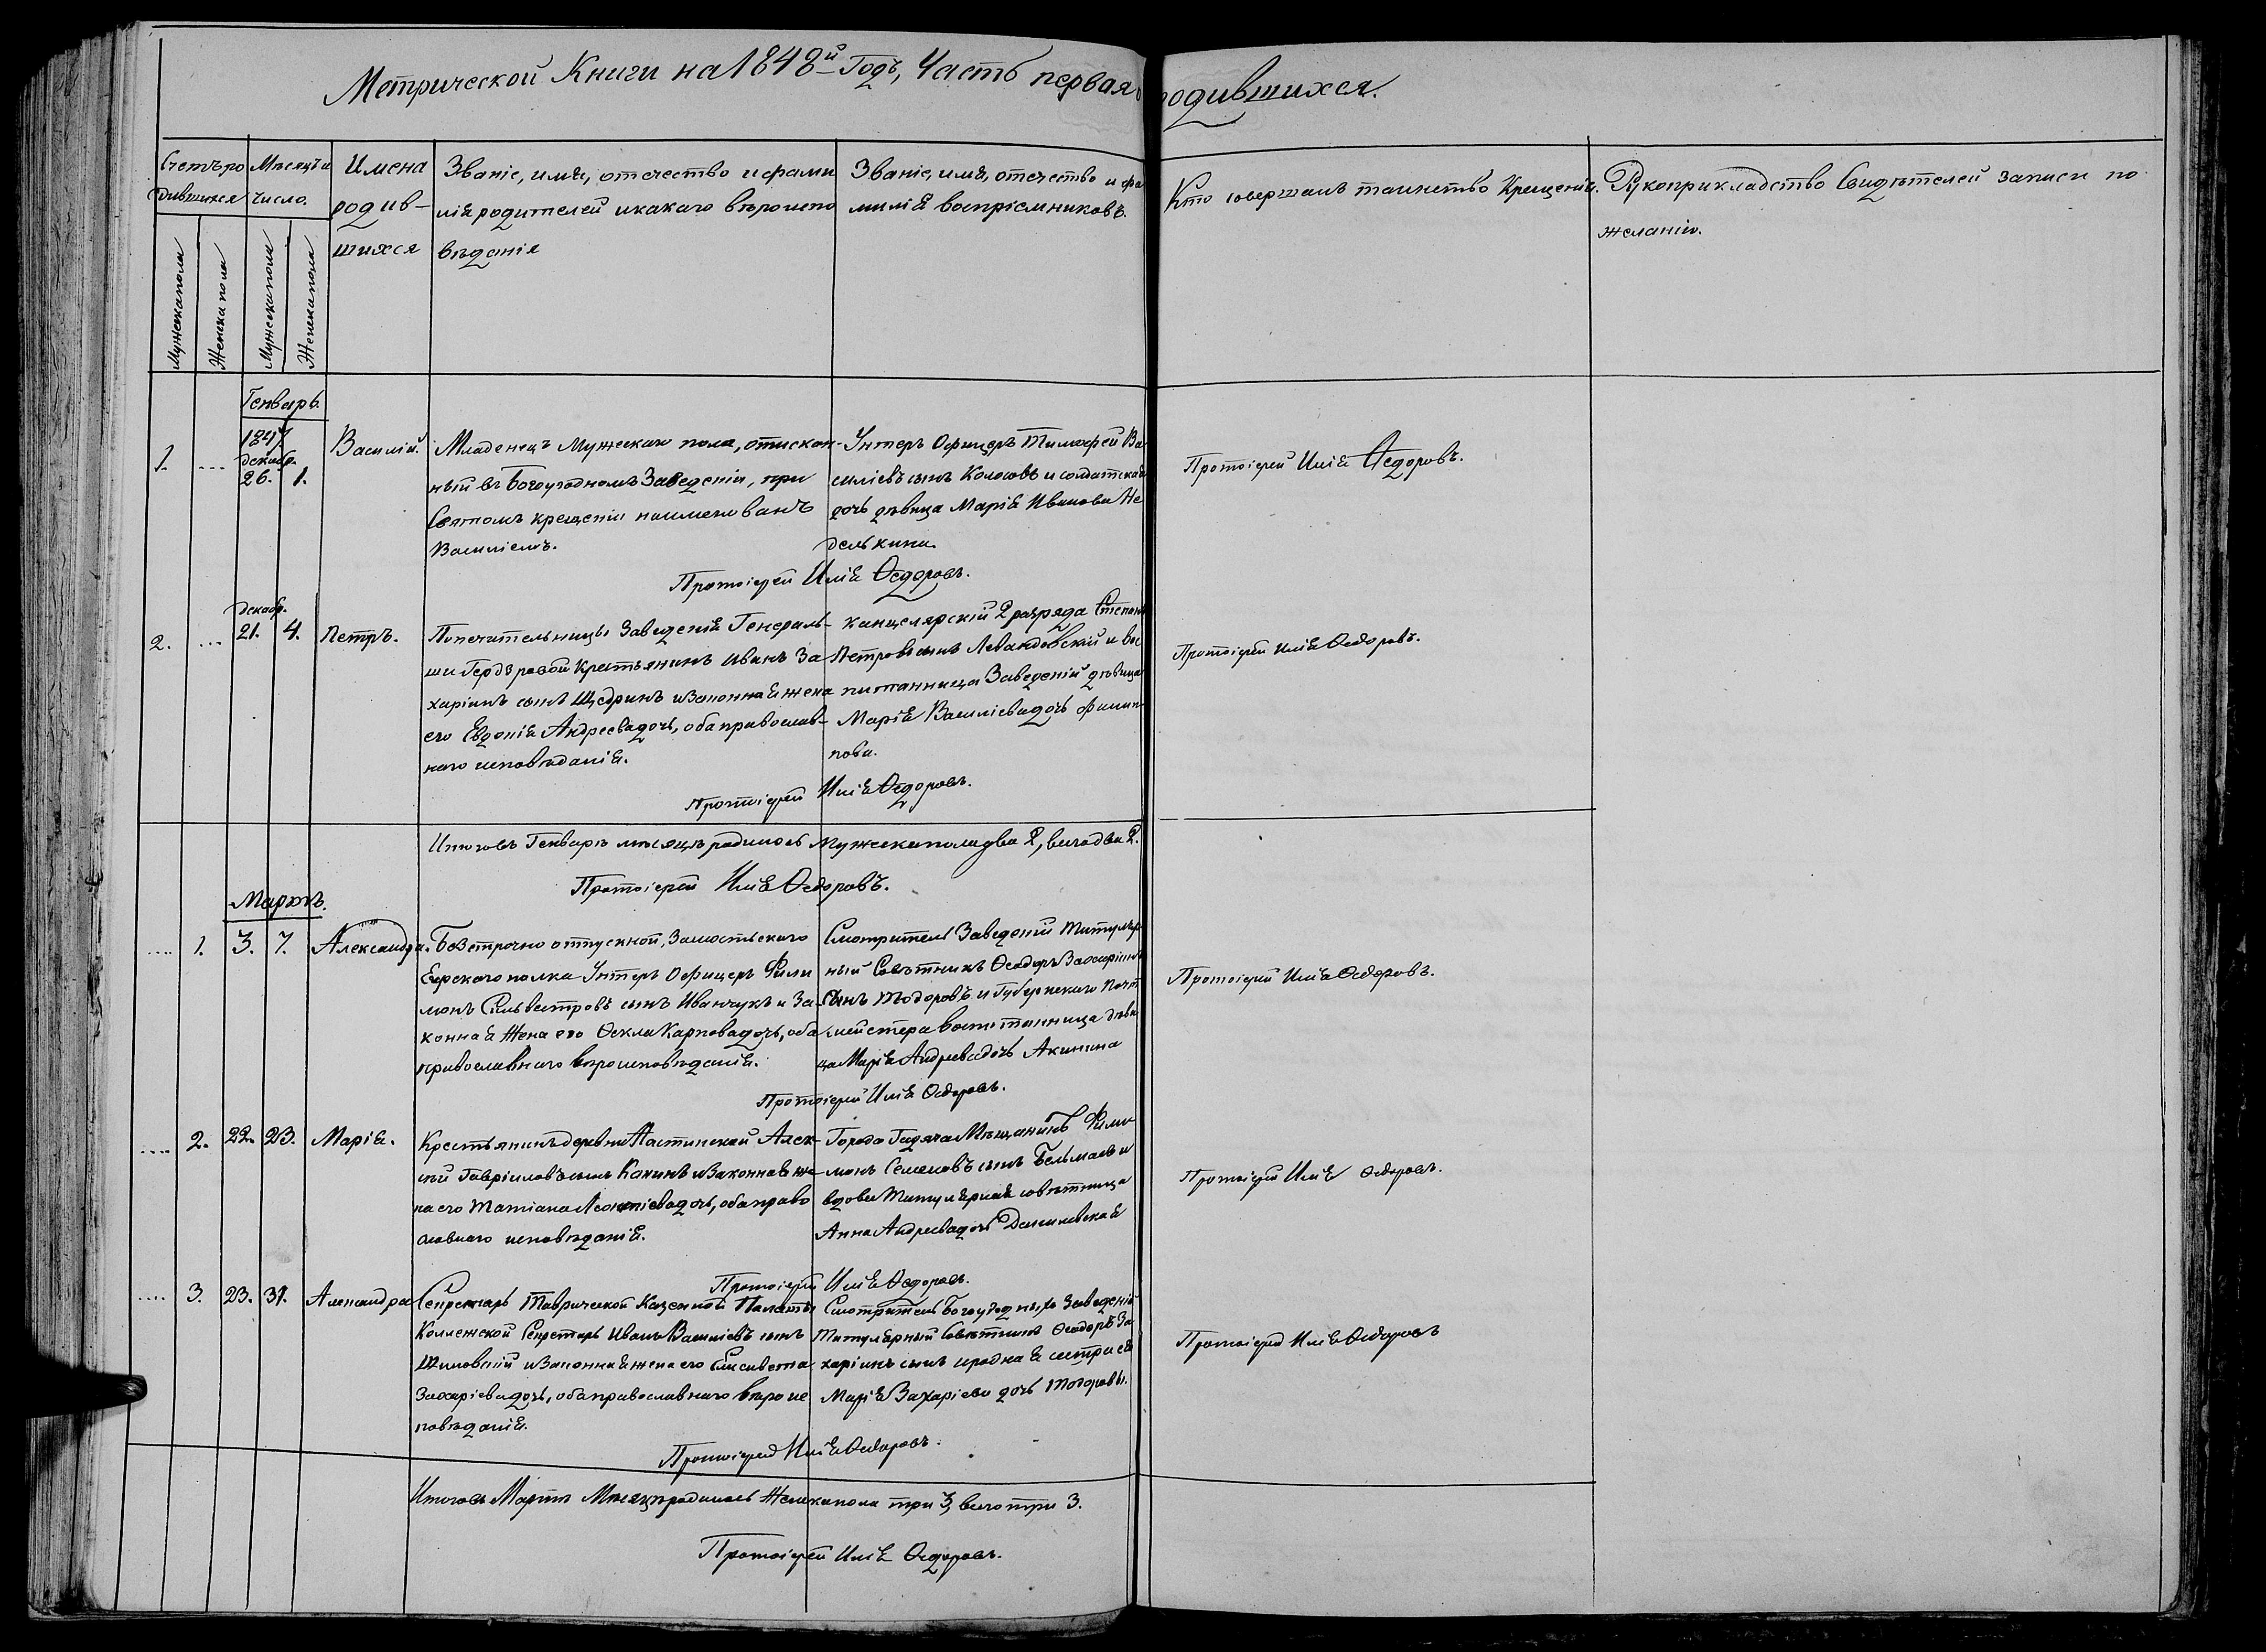 Метрической Книги на 1848й Годъ, Часть первая о родившихся.
Счетъ ро
дившихся
Мужеска пола
Женска пола
Мѣсяцъ и
число.
Мужеска пола
Женска пола
Имена
родив-
шихся
Званіе, имя, отчество и фами
лія родителей и какаго вѣроиспо
вѣданія
Званіе, имя, отчество и фа
милія воспріемниковъ.
Кто совершалъ таинство Крещенія.
Рукоприкладство Свидѣтелей записи по
желанію.
Генварь.
1. ... 1847 декабр. 26. 1. Василій.
Младенецъ Мужескаго пола, отыскан-
ный въ Богоугодномъ Заведеніи, при
Святомъ крещеніи наименованъ
Василіемъ.
Унтеръ Офицеръ Тимофей Ва
силіевъ сынъ Колосовъ и солдатская
дочь дѣвица Марія Иванова Не
делькина
Протоіерей Илія Ѳедоровъ.
Протоіерей Илія Ѳедоровъ.
2. ... декабр. 21. 4. Петръ.
Попечительницы Заведенія Генераль-
ши Гердѣровой Крестьянинъ Иванъ За
харіинъ сынъ Щедринъ и Законная жена
его Евдокія Андреева дочь, оба православ-
наго исповѣданія.
Канцелярскій 2 разряда Степанъ
Петровъ сынъ Левандовскій и вос
питанница Заведеній дѣвица
Марія Василіева дочь Филип
пова.
Протоіерей Илія Ѳедоровъ.
Протоіерей Илія Ѳедоровъ.
Итого въ Генварѣ мѣсяцѣ родилось Мужеска пола два 2, всего два 2.
Протоіерей Илія Ѳедоровъ.
Мартъ.
.... 1. 3. 7. Александра.
Безсрочно отпускной, Замостьскаго
Егерскаго полка Унтеръ Офицеръ Фили
монъ Сильвестровъ сынъ Иванчукъ и За-
конная Жена его Ѳекла Карпова дочь, оба
православнаго вѣроисповѣданія.
Смотритель Заведеній Титуляр
ный Совѣтникъ Ѳеодоръ Захаріинъ
Сынъ Тодоровъ и Губернскаго Почт
мейстера воспитанница дѣви
ца Марія Андреева дочь Акинина
Протоіерей Илія Ѳедоровъ.
Протоіерей Илія Ѳедоровъ.
.... 2. 22. 23. Марія.
Крестьянинъ деревни Алек-
сѣй Гавріиловъ сынъ и Законная же-
на его Татіана Леонтіева дочь, оба право
славнаго исповѣданія.
Города Гадяча Мѣщанинъ Фили
монъ Семеновъ сынъ Бельмасъ и
вдова Титулярная совѣтница
Анна Андреева дочь Данилевская
Протоіерей Илія Ѳедоровъ.
Протоіерей Илія Ѳедоровъ.
.... 3. 23. 31. Александра
Секретарь Таврической Казенной Палаты
Коллежской Секретарь Иванъ Василіевъ сынъ
Шиловскій и Законная жена его Елисавета
Захаріева дочь, оба православнаго вѣроис
повѣданія.
Смотритель Богоугодныхъ Заведеній
Титулярный Совѣтникъ Ѳеодоръ За
харіинъ сынъ и родная сестра ея
Марія Захаріева дочь Тодоровы.
Протоіерей Илія Ѳедоровъ.
Протоіерей Илія Ѳедоровъ
Итого въ Мартѣ Мѣсяцѣ родилось Женска пола три 3, всего три 3.
Протоіерей Илія Ѳедоровъ.